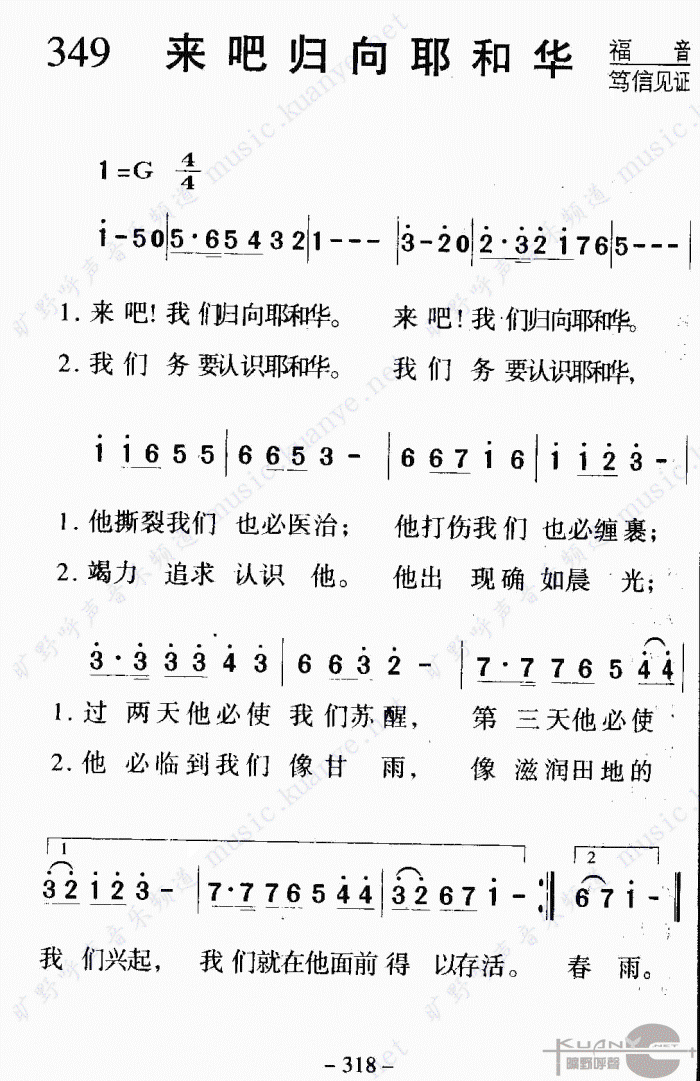 349 来吧归向耶和华 福音
笃信见证
1=G 4/4
i-50|5·65432|1---|3-20|2·32i765---|
1.来吧!我们归向耶和华。 来吧!我们归向耶和华。
2.我们务要认识耶和华。 我们务要认识耶和华,
i i655|6653-|667i6|ii23-|
1.他撕裂我们也必医治; 他打伤我们也必缠裹;
2.竭力追求认识他。 他出现确如晨光;
3·33343|6632-|7·776544|
1.过两天他必使我们苏醒, 第三天他必使
2.他必临到我们像甘雨, 像滋润田地的
1 2
32i23-|7·7776544|3267i-:‖67i-‖
我们兴起, 我们就在他面前得以存活。 春雨。
-318-
KUANYE.NET
旷野呼声
旷野呼声音乐频道 music.kuanye.net